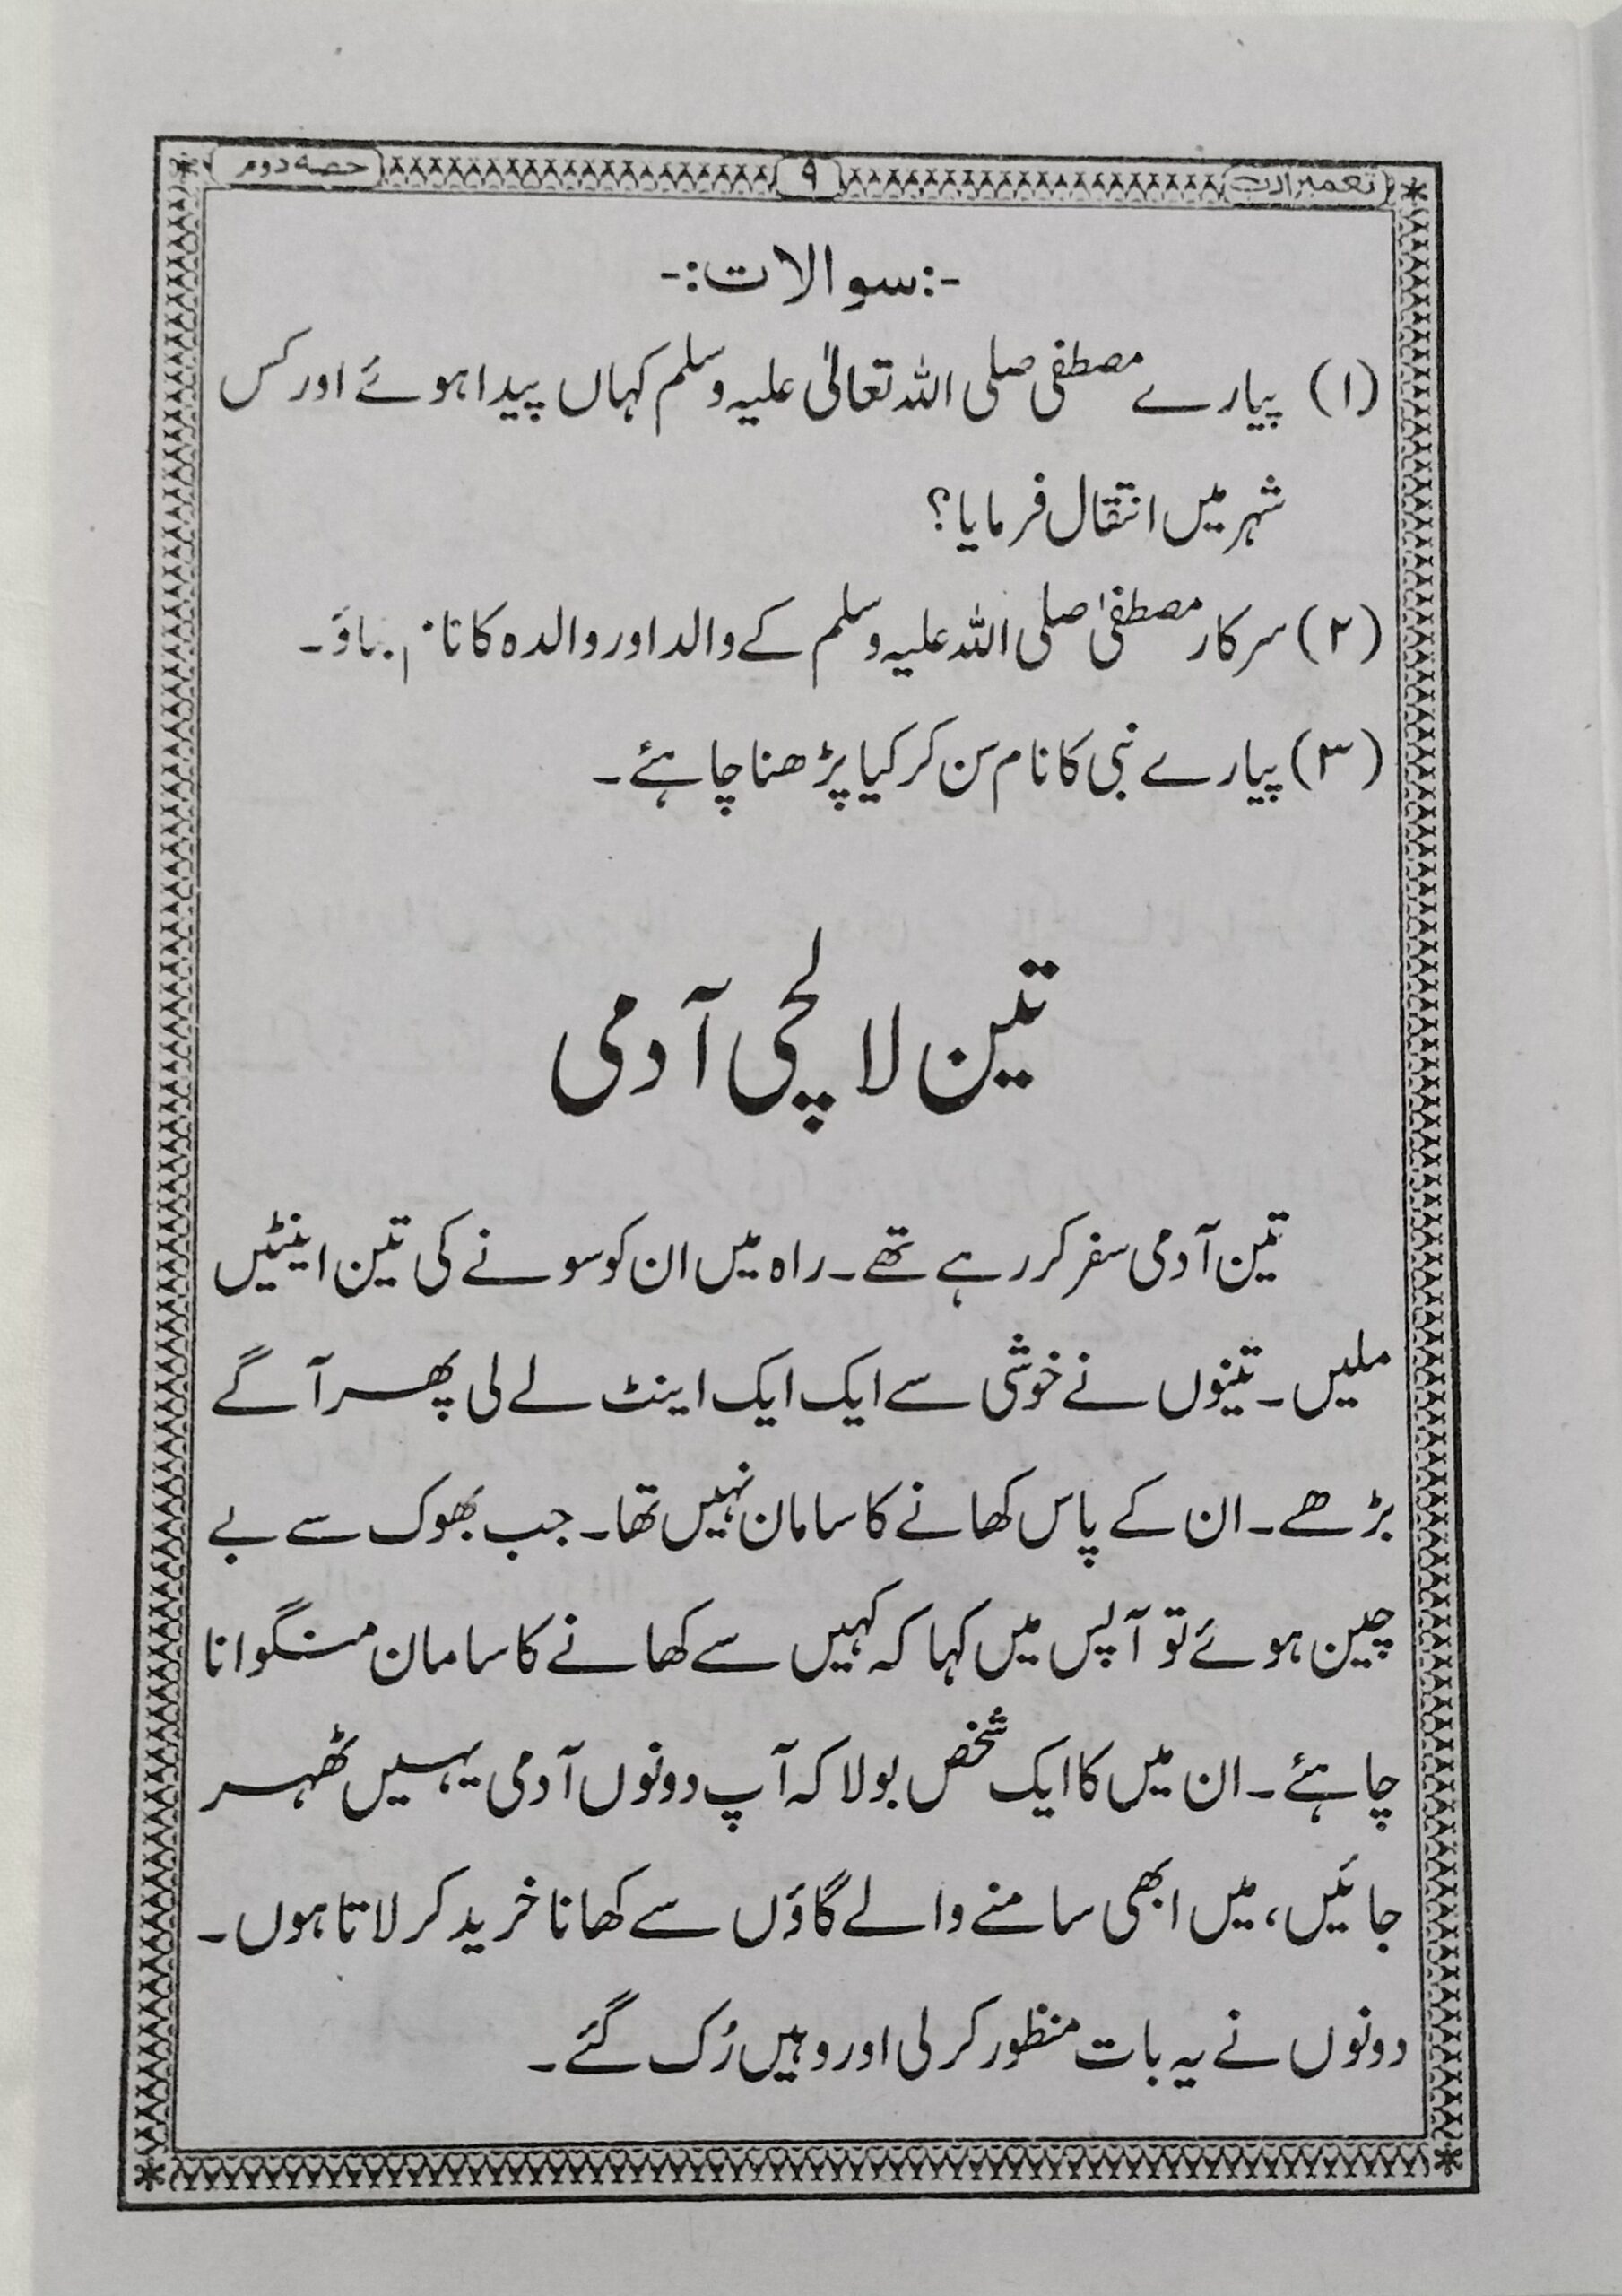 تعمیر ادب ۹ حصہ دوم
-:سوالات:-
(۱) پیارے مصطفی صلی اللہ تعالیٰ علیہ وسلم کہاں پیدا ہوئے اور کس
شہر میں انتقال فرمایا؟
(۲) سرکار مصطفیٰ صلی اللہ علیہ وسلم کے والد اور والدہ کا نام
(۳) پیارے نبی کا نام سن کر کیا پڑھنا چاہئے۔
تین لالچی آدمی
تین آدمی سفر کر رہے تھے۔ راہ میں ان کو سونے کی تین اینٹیں
ملیں۔ تینوں نے خوشی سے ایک ایک اینٹ لے لی پھر آگے
بڑھے۔ ان کے پاس کھانے کا سامان نہیں تھا۔ جب بھوک سے بے
چین ہوئے تو آپس میں کہا کہ کہیں سے کھانے کا سامان منگوانا
چاہئے۔ ان میں کا ایک شخص بولا کہ آپ دونوں آدمی یہیں ٹھہر
جائیں، میں ابھی سامنے والے گاؤں سے کھانا خرید کر لاتا ہوں۔
دونوں نے یہ بات منظور کر لی اور وہیں رُک گئے۔